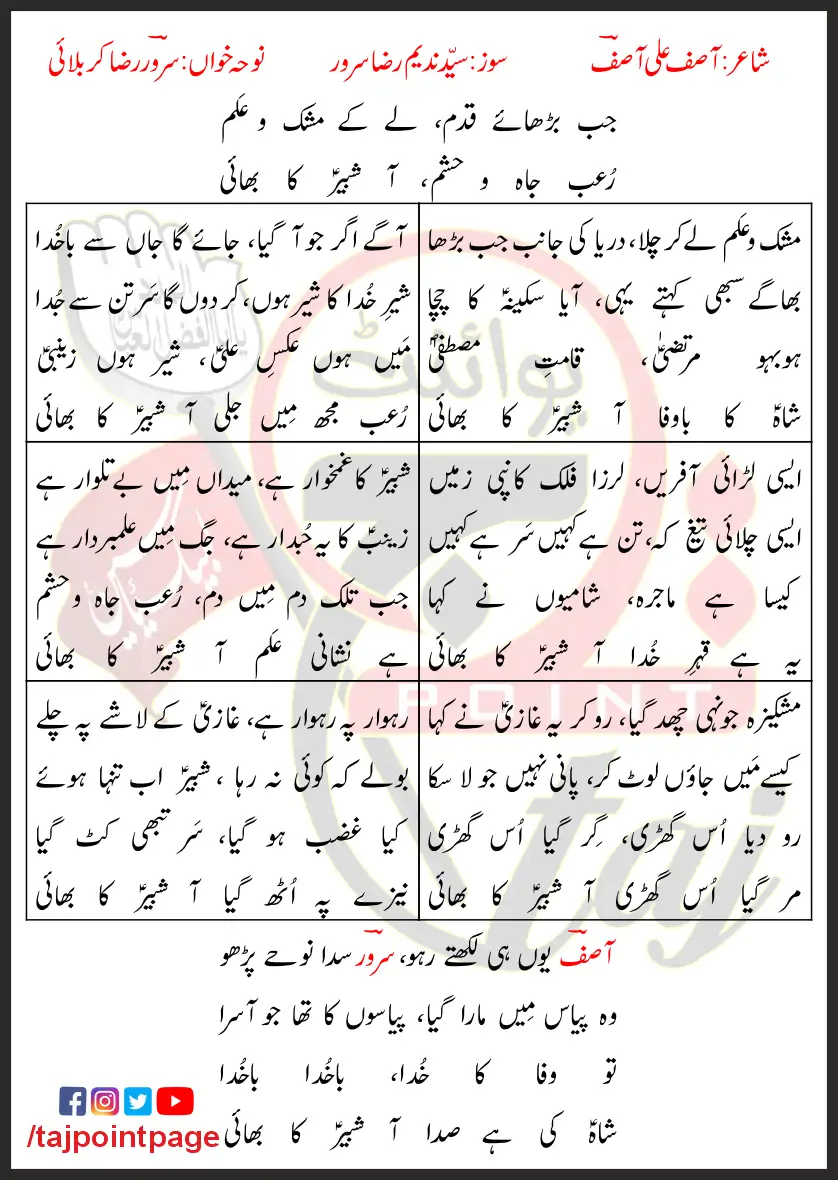 شاعر: آصف علی آصفؔ
سوز: سیّد ندیم رضا سرور
نوحہ خواں: سرورؔ رضا کربلائی
جب بڑھائے قدم، لے کے مشک و عَلم
رُعب جاہ و حشم، آ شبیرؑ کا بھائی
مشک و عَلم لے کر چلا، دریا کی جانب جب بڑھا
بھاگے سبھی کہتے یہی، آیا سکینہؑ کا چچا
ہوبہو مرتضیٰؑ، قامتِ مصطفیٰؐ
شاہؑ کا باوفا آ شبیرؑ کا بھائی
آگے اگر جو آ گیا، جائے گا جاں سے باخُدا
شیرِ خُدا کا شیر ہوں، کر دوں گا سَر تن سے جُدا
مَیں ہوں عکسِ علیؑ، شیر ہوں زینبیؑ
رُعب مجھ مِیں جلی آ شبیرؑ کا بھائی
ایسی لڑائی آفریں، لرزا فلک کانپی زمیں
ایسی چلائی تیغ کہ، تن ہے کہیں سَر ہے کہیں
کیسا ہے ماجرہ، شامیوں نے کہا
یہ ہے قہرِ خُدا آ شبیرؑ کا بھائی
شبیرؑ کا غمخوار ہے، میداں مِیں بے تلوار ہے
زینبؑ کا یہ حُبدار ہے، جگ مِیں علمبردار ہے
جب تلک دم مِیں دم، رُعب جاہ و حشم
ہے نشانی عَلم آ شبیرؑ کا بھائی
مشکیزہ جونہی چھد گیا، رو کر یہ غازیؑ نے کہا
کیسے مَیں جاؤں لوٹ کر، پانی نہیں جو لا سکا
رو دیا اُس گھڑی، گِر گیا اُس گھڑی
مر گیا اُس گھڑی آ شبیرؑ کا بھائی
رہوار پہ رہوار ہے، غازیؑ کے لاشے پہ چلے
بولے کہ کوئی نہ رہا ، شبیرؑ اب تنہا ہوئے
کیا غضب ہو گیا، سَر تبھی کٹ گیا
نیزے پہ اُٹھ گیا آ شبیرؑ کا بھائی
آصفؔ یوں ہی لکھتے رہو، سرورؔ سدا نوحے پڑھو
وہ پیاس مِیں مارا گیا، پیاسوں کا تھا جو آسرا
تو وفا کا خُدا، باخُدا باخُدا
شاہؑ کی ہے صدا آ شبیرؑ کا بھائی
/tajpointpage
پوائنٹ
POINT
taj